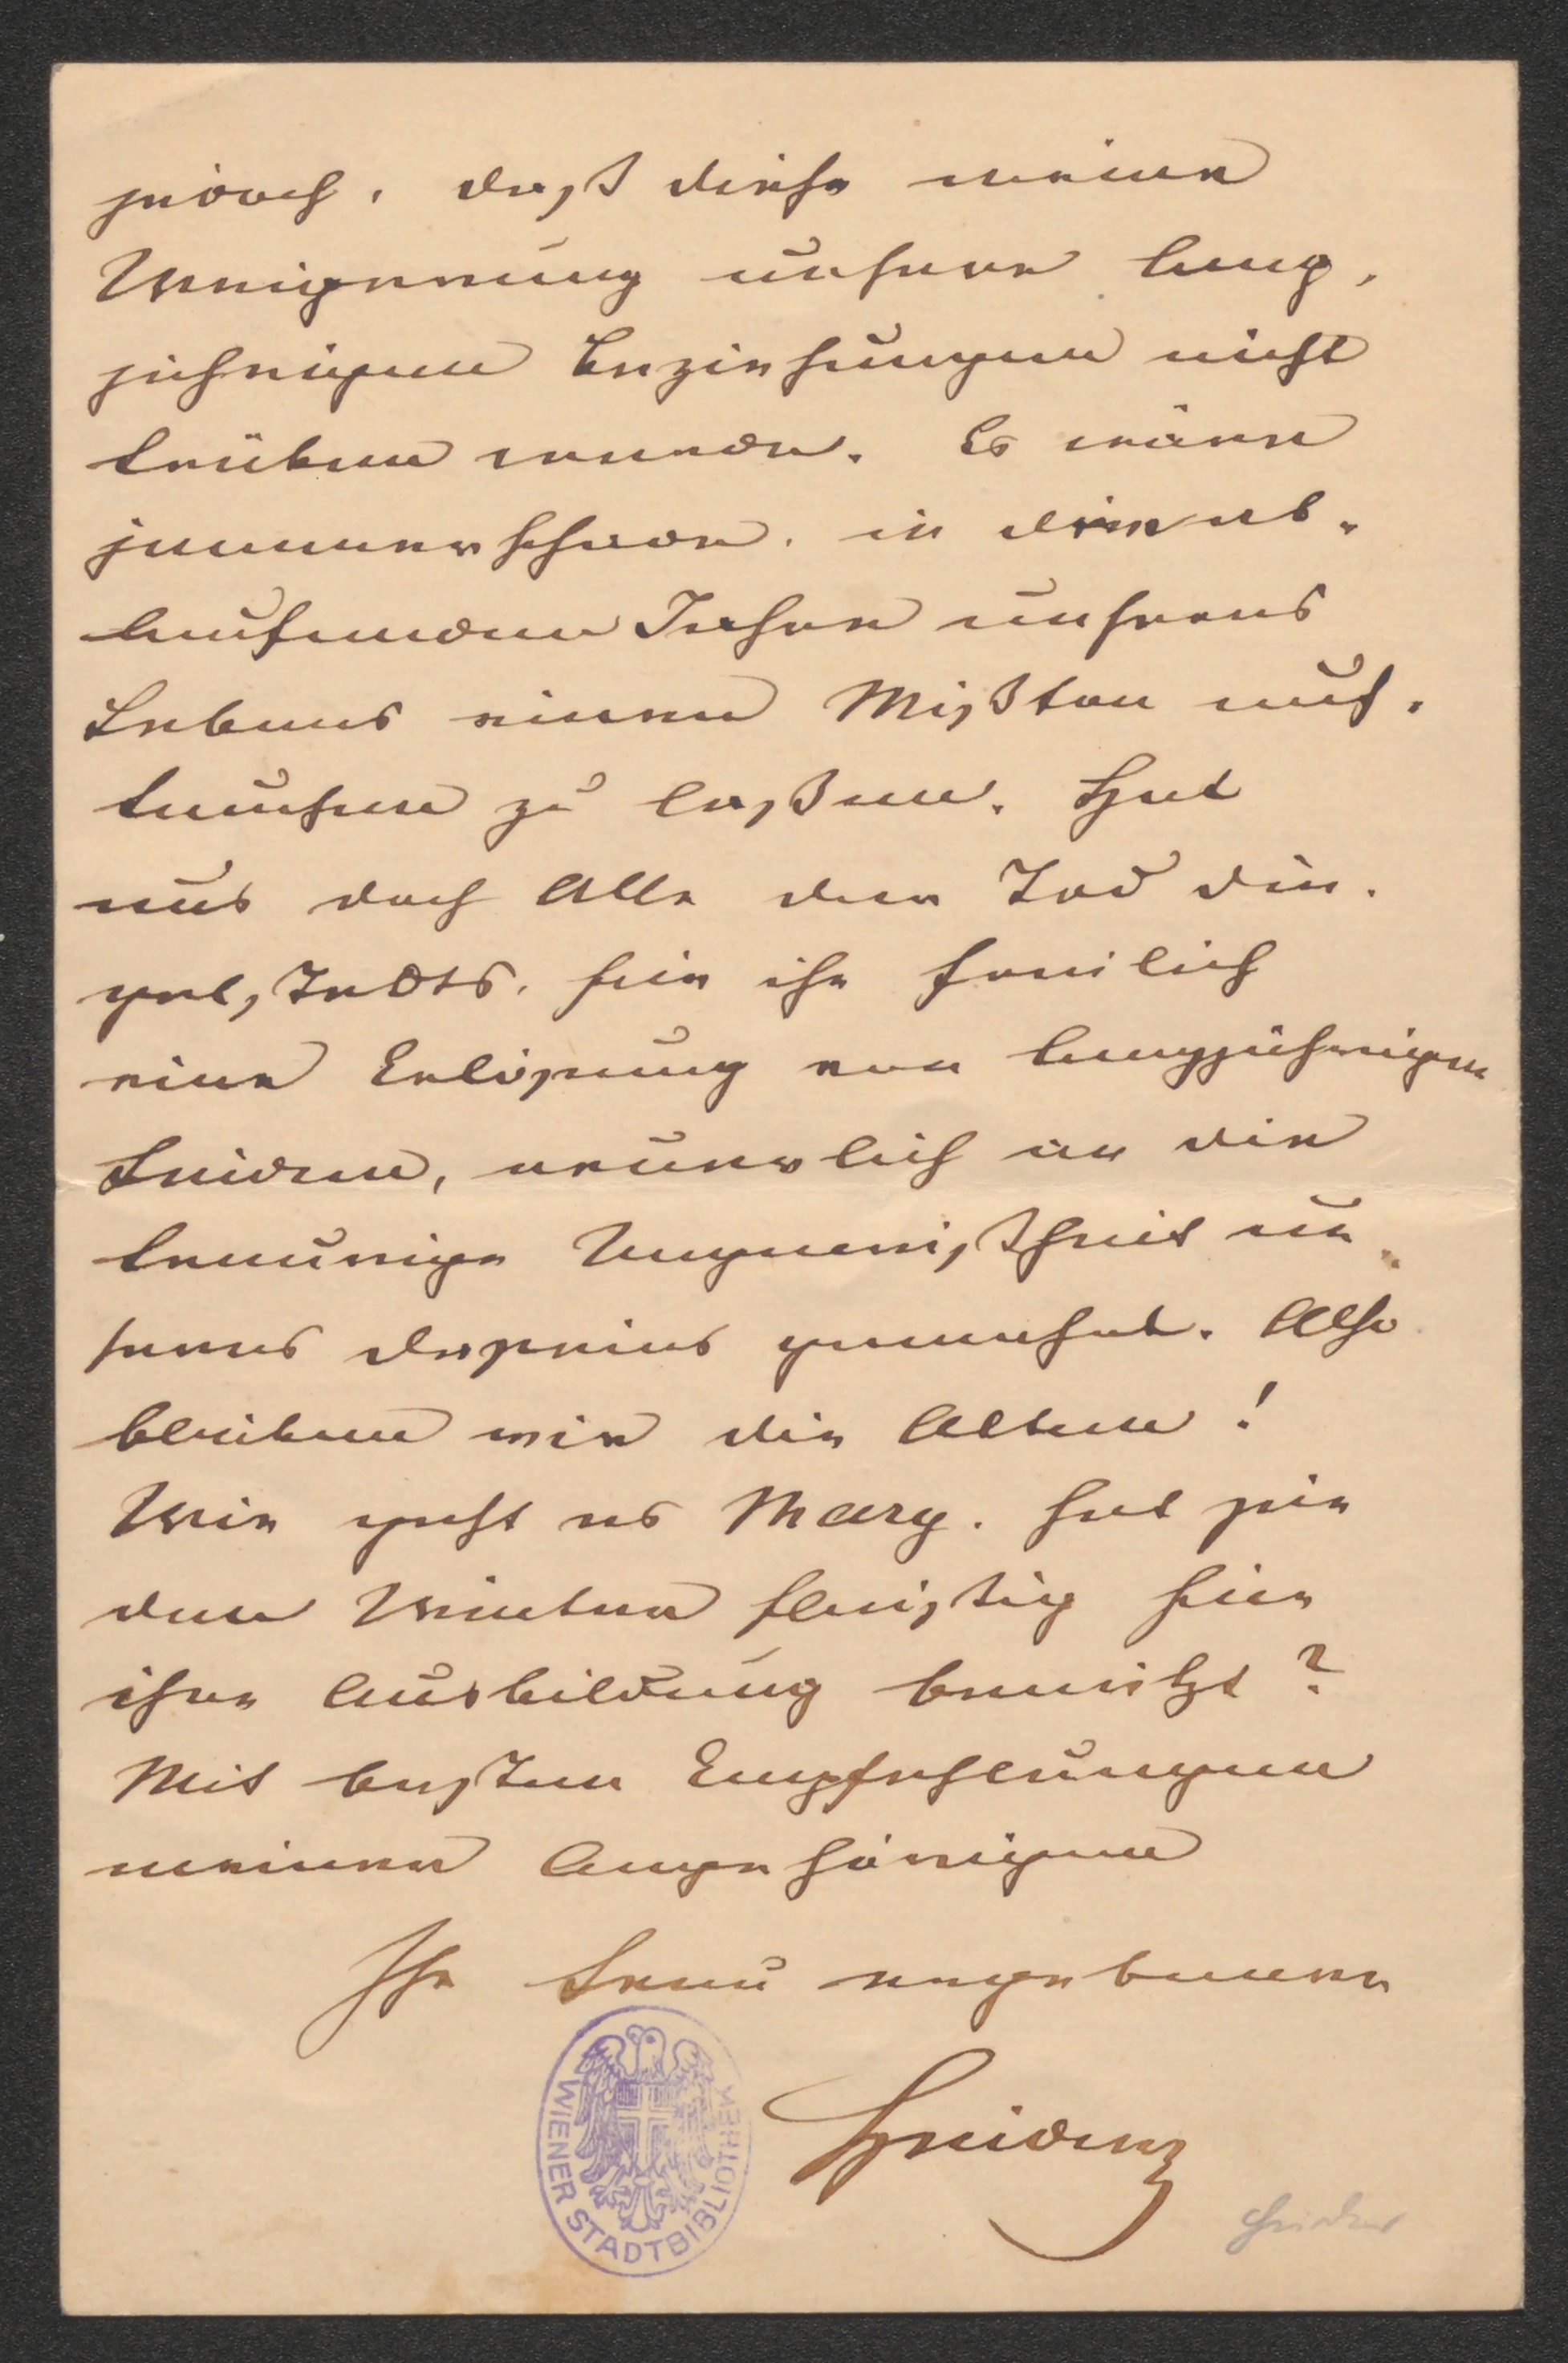 jedoch, daß diese meine
Weigerung unsere lang-
jährigen Beziehungen nicht
trüben werde. Es wäre
jammerschade, in dem ab-
laufenden Jahre unseres
Lebens einen Mißton auf-
tauchen zu laßen. Hat
uns doch Alle der Tod
für ihn freilich
eine Erlösung von langjährigem
Leiden, neuerlich an die
traurige Ungewißheit un-
seres Daseins gemahnt. Also
bleiben wir die Alten!
Wie geht es Mary. hat sie
den Winter fleißig für
ihre Ausbildung benützt?
Mit besten Empfehlungen
meiner Angehörigen
Ihr treu ergebener
WIENER STADTBIBLIOTHEK